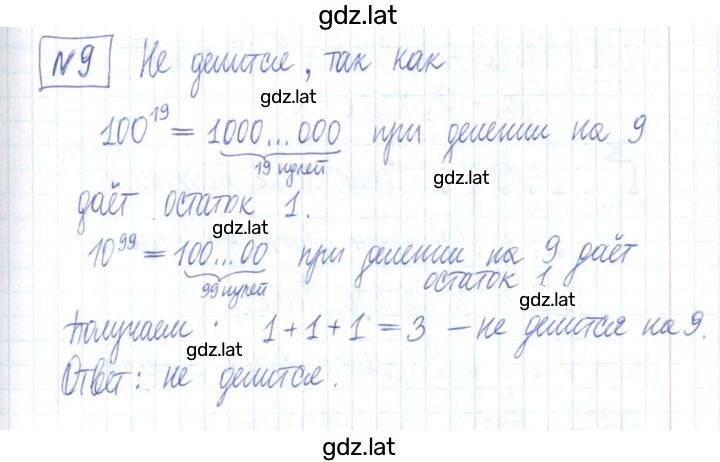 gdz.lat
№9 Не делится, так как
gdz.lat
100^19 = 1000...000 при делении на 9
19 нулей
gdz.lat
даёт остаток 1.
gdz.lat
10^99 = 100...00 при делении на 9 даёт
99 нулей остаток 1
gdz.lat
Получаем: 1+1+1=3 – не делится на 9.
gdz.lat
Ответ: не делится.
gdz.lat